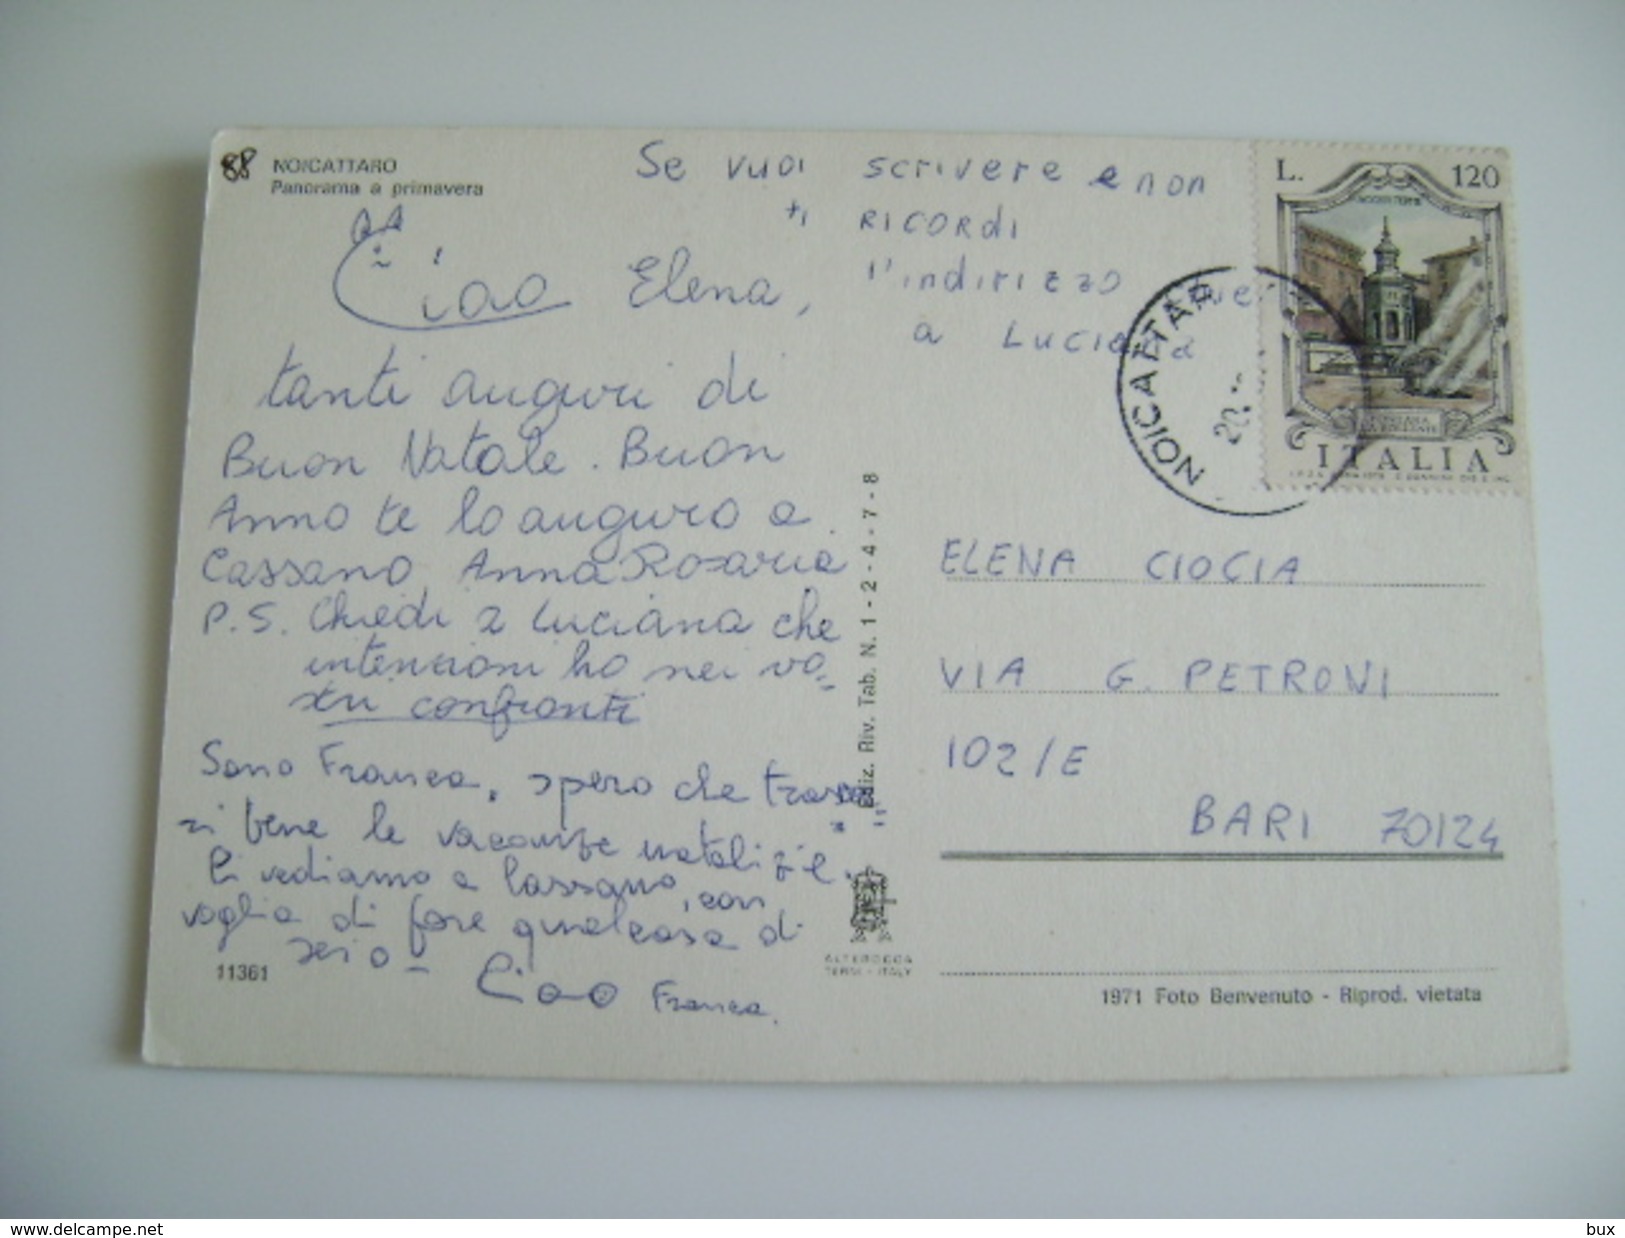 88 NOICATTARO
Panorama a primavera
Se vuoi scrivere e non
ti RICORdi
l'indirizzo
a LUCIANA
Ciao Elena,
tanti auguri di
Buon Natale. Buon
Anno te lo auguro a
Cassano, Anna Rosaria
P.S. Chiedi a Luciana che
intenzioni ho nei vo-
stri confronti
Sono Franca, spero che trasco
ri bene le vacanze natalizie.
Ci vediamo a Cassano, con
voglia di fare qualcosa di
serio -
Ciao Franca.
11361
Ediz. Riv. Tab. N. 1 - 2 - 4 - 7 - 8
ALTEROCCA
TERNI - ITALY
L. 120
ITALIA
NOICATTAR
ELENA CIOCIA
VIA G. PETRONI
102/E
BARI 70124
1971 Foto Benvenuto - Riprod. vietata
delcampe.net
bux